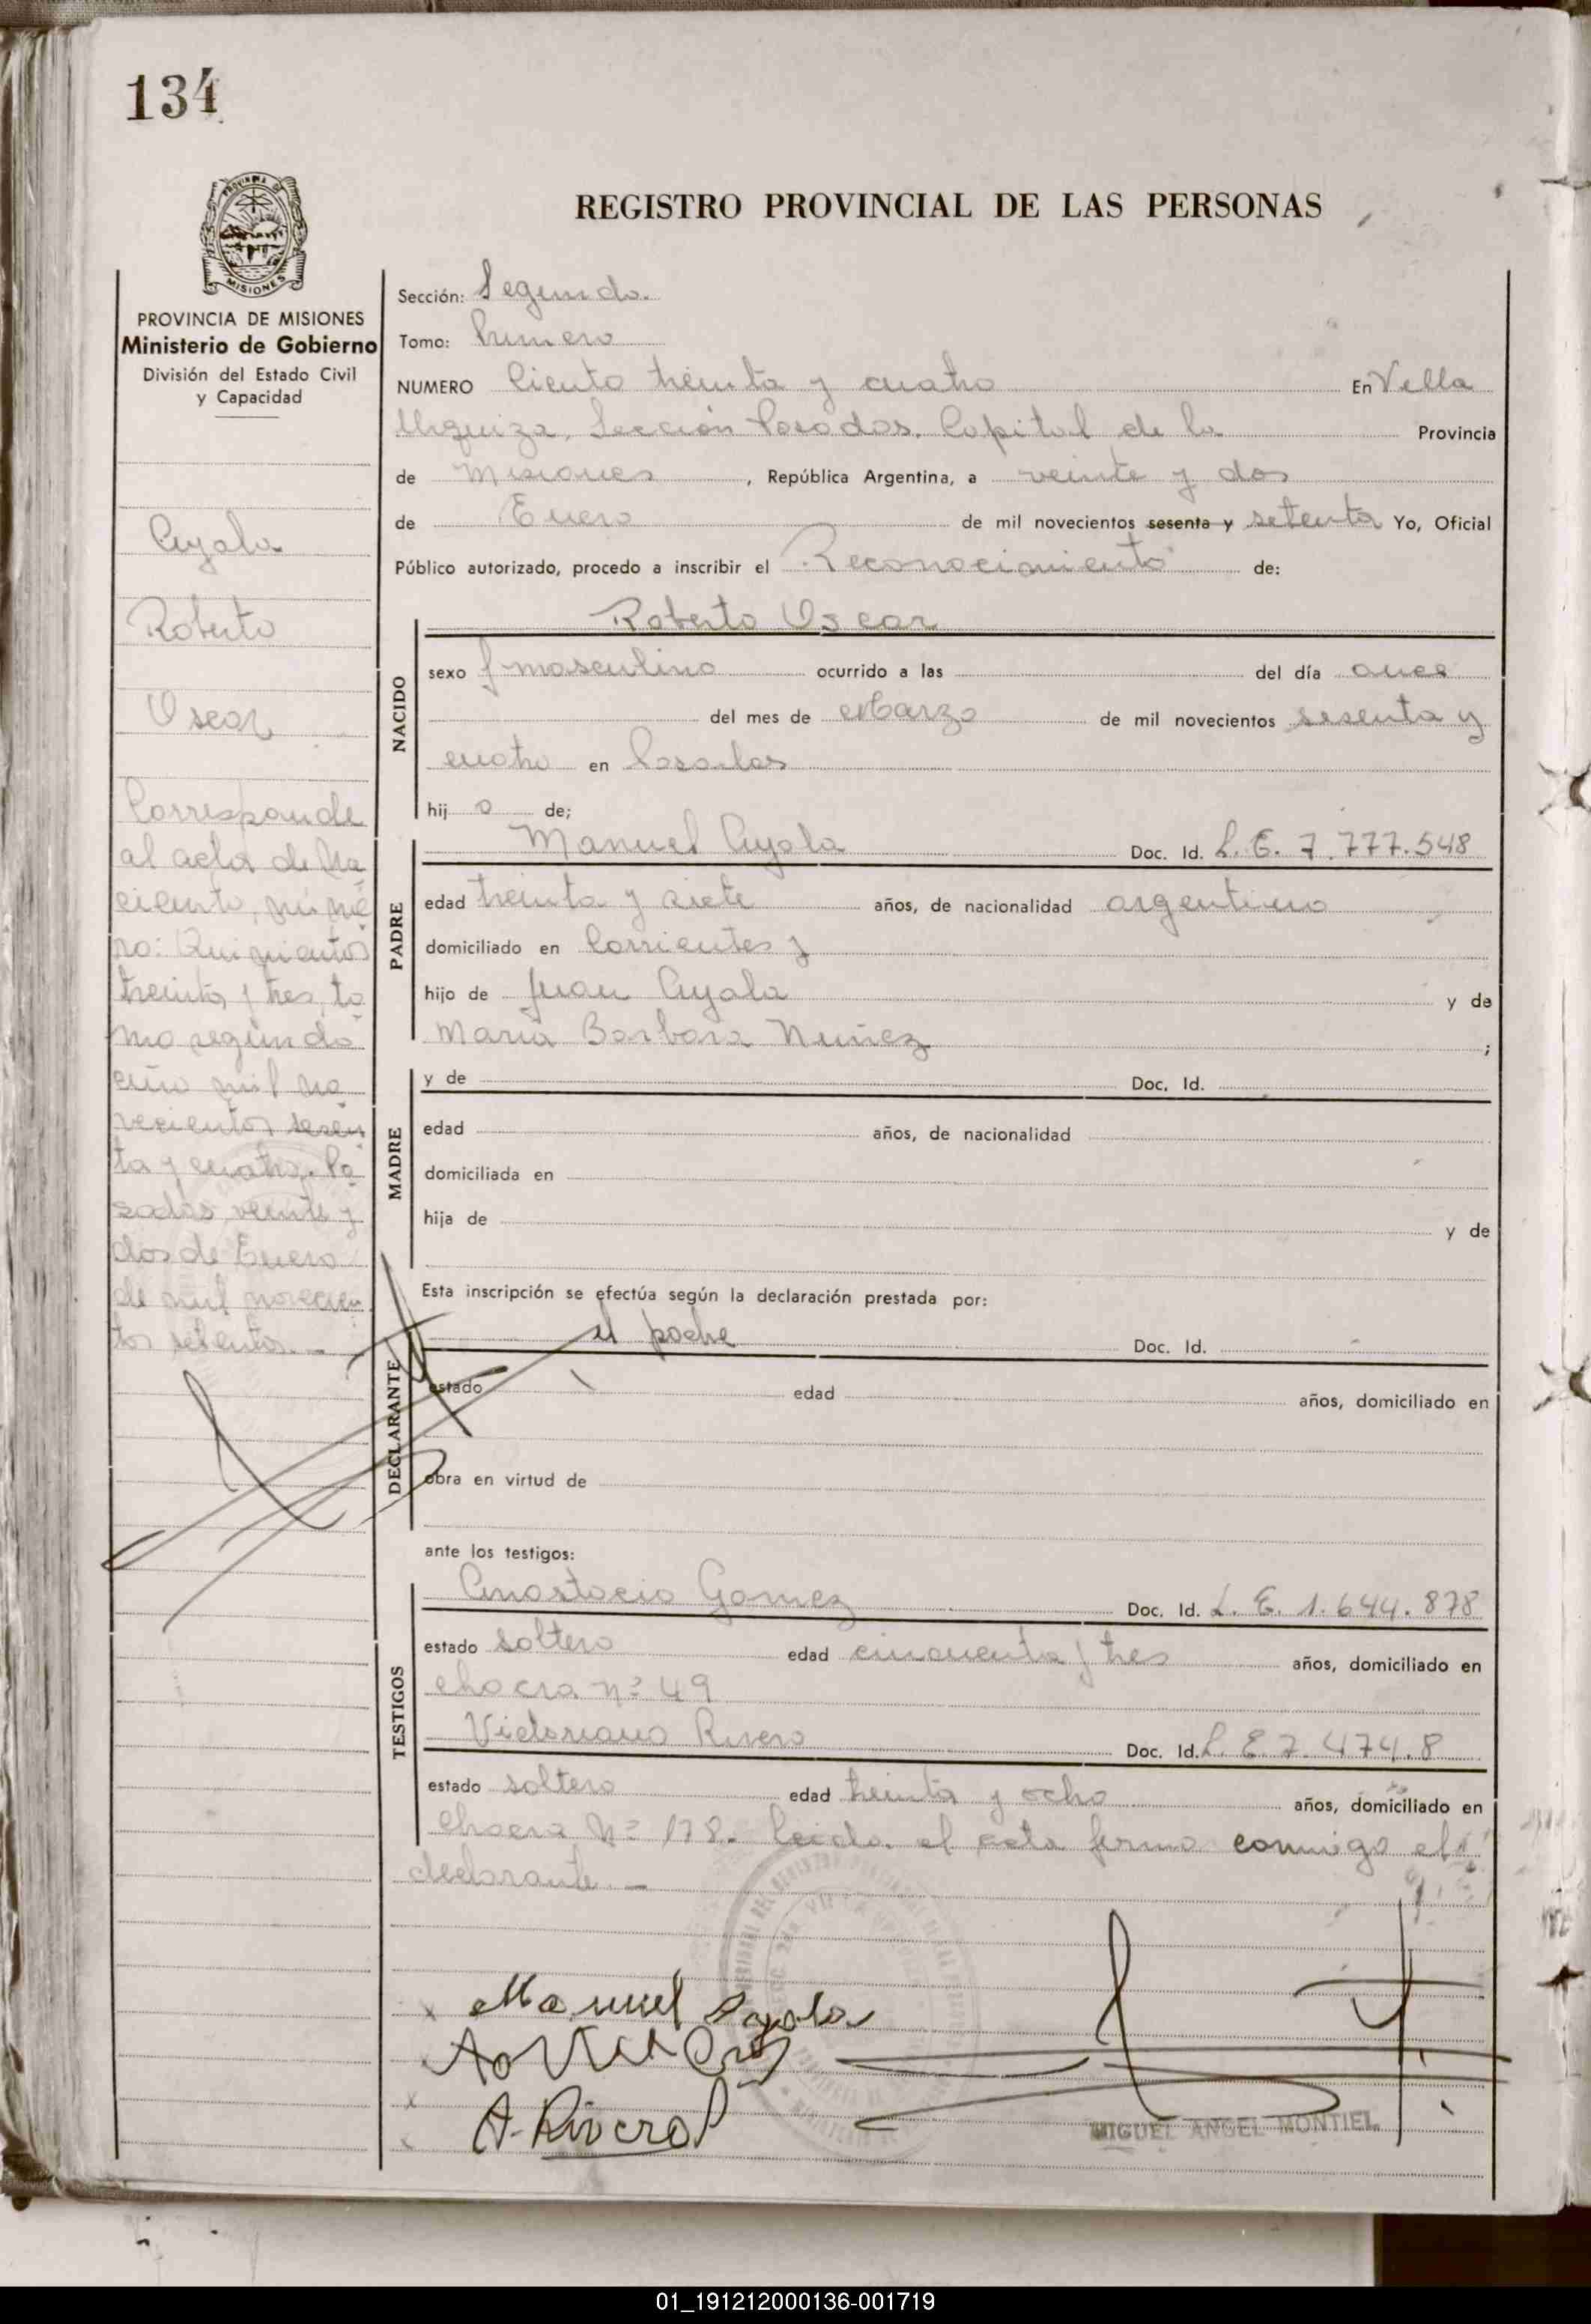 134
REGISTRO PROVINCIAL DE LAS PERSONAS
MISIONES
PROVINCIA DE MISIONES
Ministerio de Gobierno
División del Estado Civil
y Capacidad
Ayala
Roberto
Oscar
Corresponde
al acta de Na
cimiento, núme
ro: Quinientos
treinta y tres, to
mo segundo
año mil no
vecientos sesen
ta y cuatro. Po
sadas, veinte y
dos de Enero
de mil novecien
tos setenta. -
Sección: Segunda.
Tomo: Primero
NUMERO Ciento treinta y cuatro En Villa
Urquiza, Sección Posadas, Capital de la Provincia
de Misiones, República Argentina, a veinte y dos
de Enero de mil novecientos sesenta y setenta Yo, Oficial
Público autorizado, procedo a inscribir el Reconocimiento de:
NACIDO
Roberto Oscar
sexo masculino ocurrido a las del día once
del mes de Marzo de mil novecientos sesenta y
cuatro en Posadas
hij o de;
PADRE
Manuel Ayala Doc. Id. L. E. 7.777.548
edad treinta y siete años, de nacionalidad argentino
domiciliado en Corrientes y
hijo de Juan Ayala y de
María Barbara Nuñez ;
MADRE
y de Doc. Id.
edad años, de nacionalidad
domiciliada en
hija de y de
Esta inscripción se efectúa según la declaración prestada por:
DECLARANTE
el padre Doc. Id.
estado edad años, domiciliado en
obra en virtud de
ante los testigos:
TESTIGOS
Anastacio Gomez Doc. Id. L. E. 1.644.878
estado soltero edad cincuenta y tres años, domiciliado en
chacra nº 49
Victoriano Rivero Doc. Id. L. E. 7.474.8
estado soltero edad treinta y ocho años, domiciliado en
chacra Nº 178. Leida el acta firma conmigo el
declarante. -
x Manuel Ayala
A. Rivero
MIGUEL ANGEL MONTIEL
01_191212000136-001719